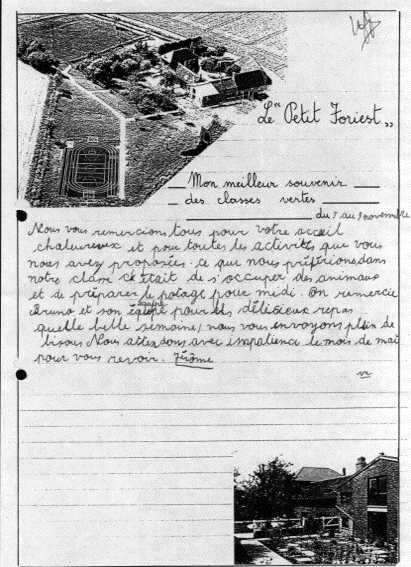 Le "Petit Foriest"
Mon meilleur souvenir
des classes vertes
du 5 au 9 novembre
Nous vous remercions tous pour votre accueil
chaleureux et pour toutes les activités que vous
nous avez proposées. Ce que nous préférions dans
notre classe c'était de s'occuper des animaux
et de préparer le potage pour midi. On remercie
équipe
Bruno et son équipe pour les délicieux repas
quelle belle semaine, nous vous envoyons plein de
bisous. Nous attendons avec impatience le mois de mai
pour vous revoir. Jérôme